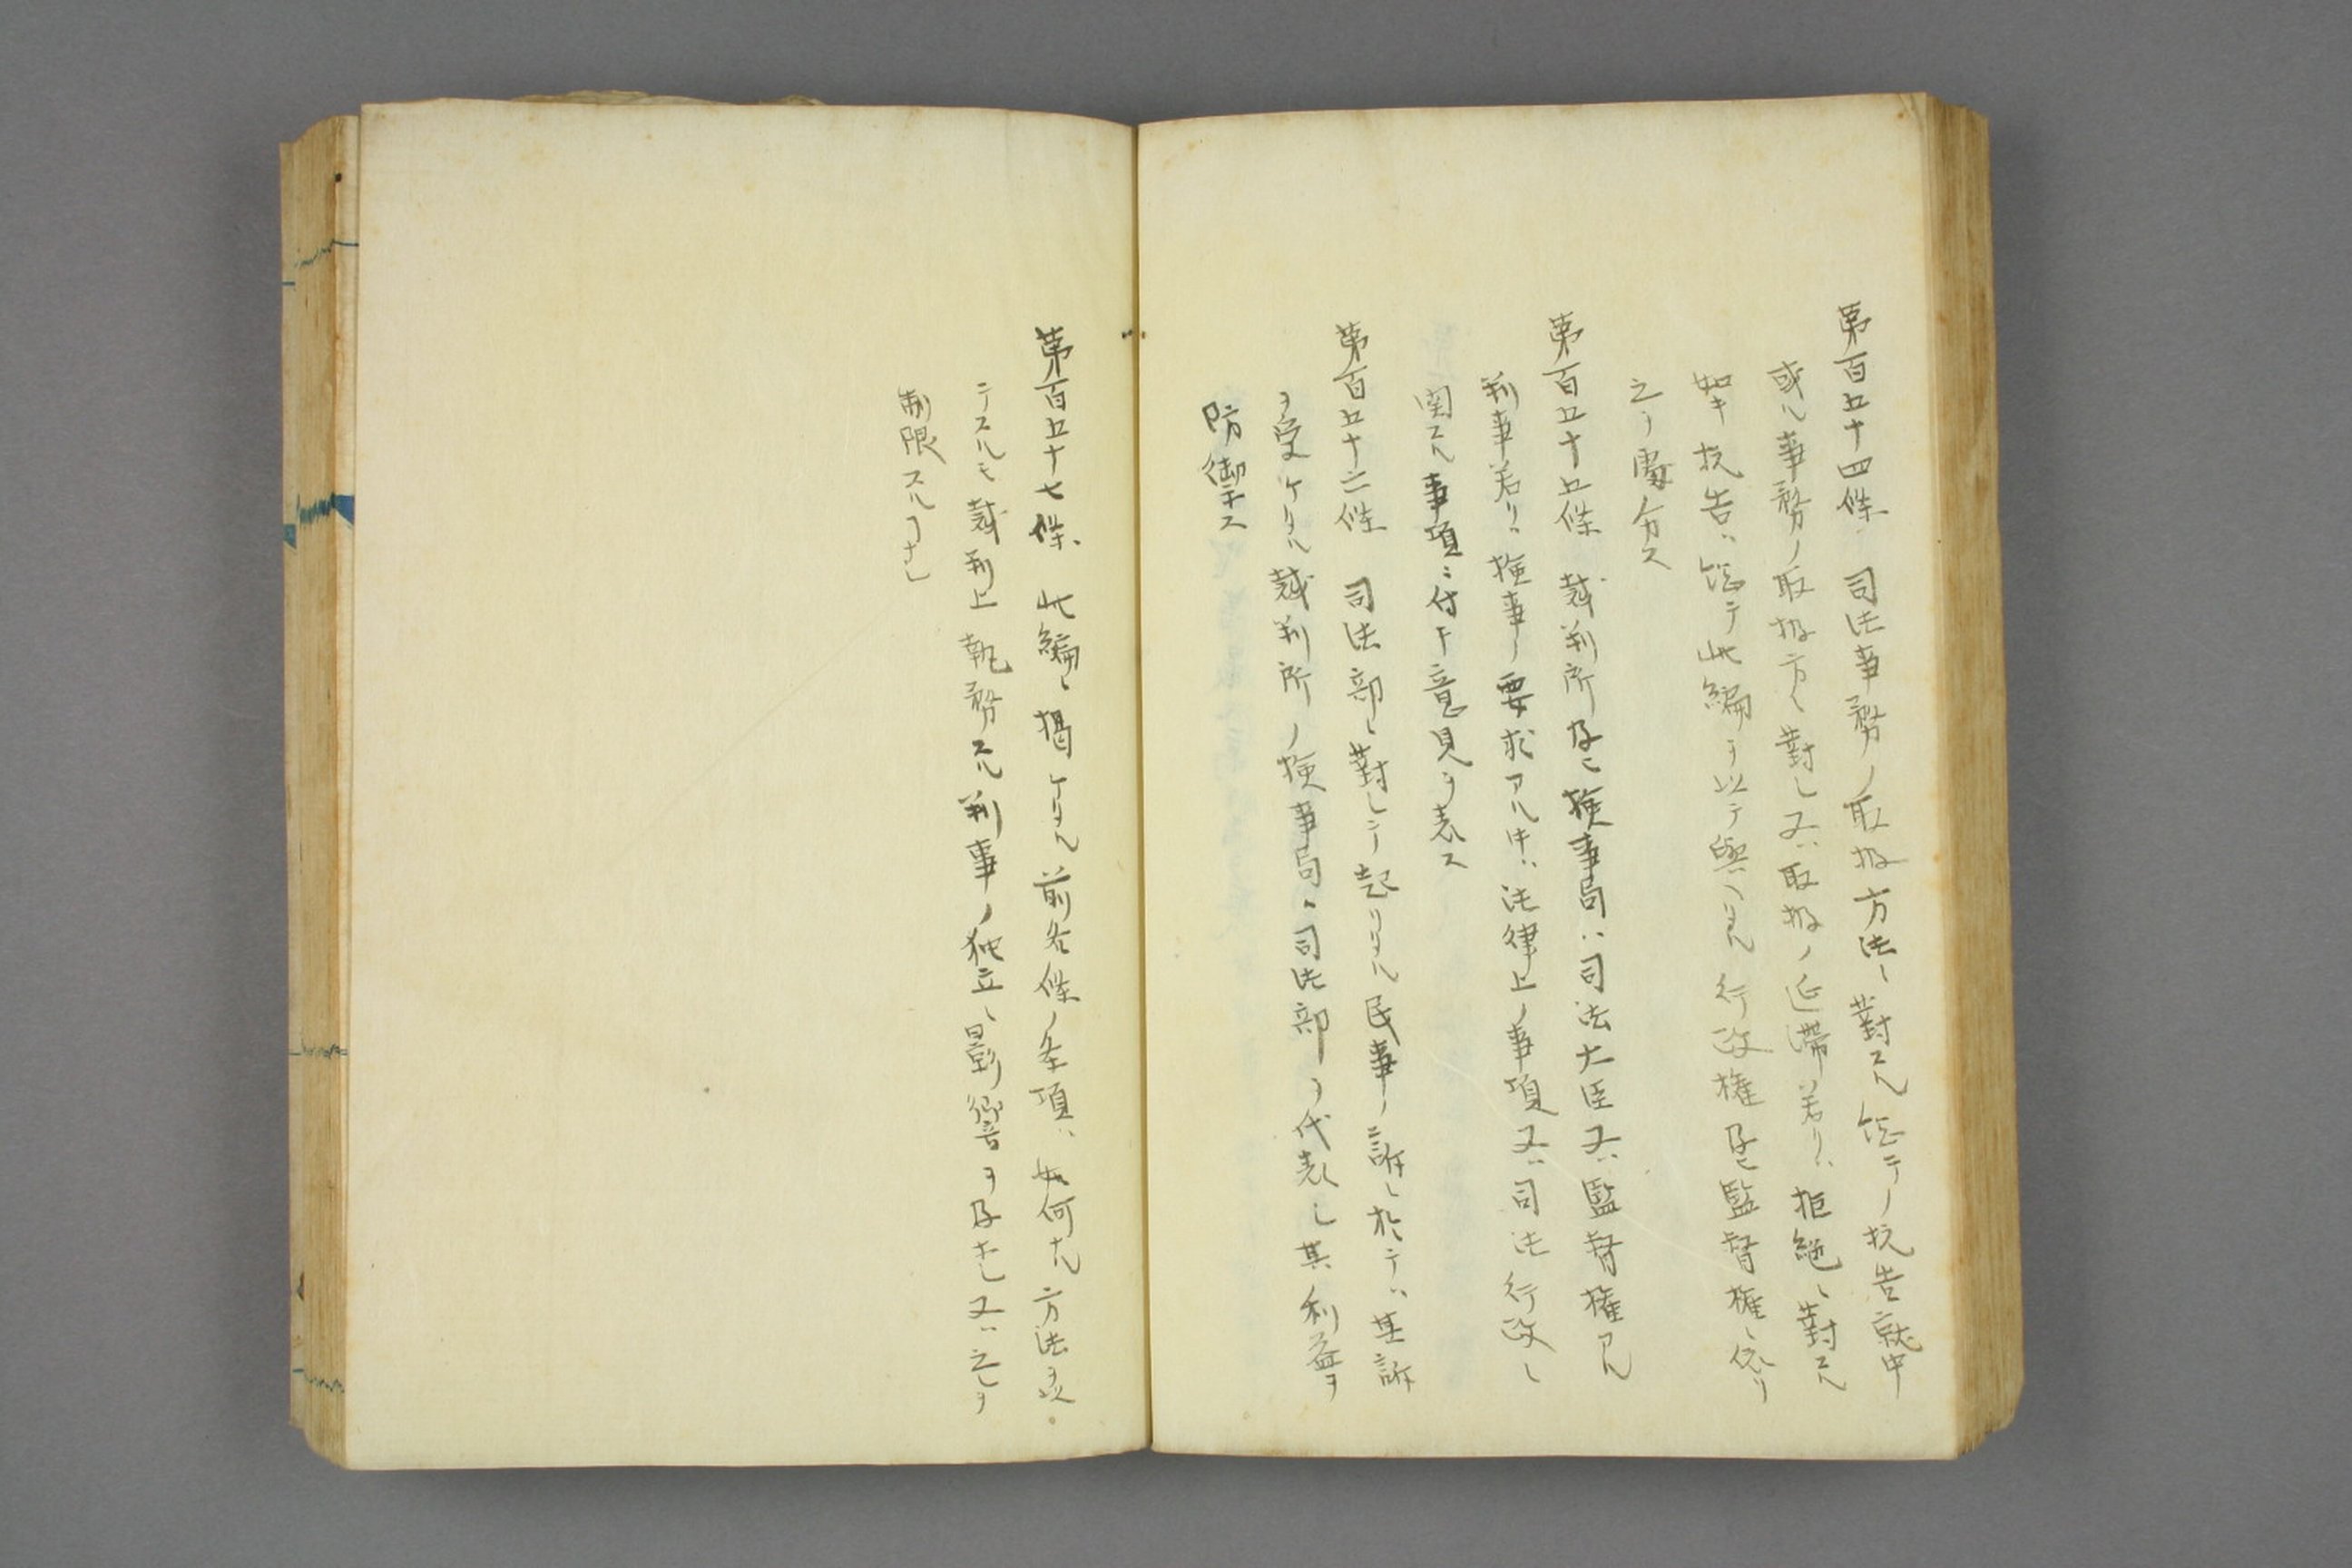 第百五十四條 司法事務ノ取扱方法ニ對スル総テノ抗告就中
或ル事務ノ取扱方ニ對シ又ハ取扱ノ延滞若クハ拒絶ニ對スル
如キ抗告ハ総テ此編ヲ以テ與ヘタル行政權及ヒ監督權ニ依リ
之ヲ處分ス
第百五十五條 裁判所及ヒ検事局ハ司法大臣又ハ監督權アル
判事若クハ検事ノ要求アル中ハ法律上ノ事項又ハ司法行政ニ
関スル事項ニ付キ意見ヲ表ス
第百五十六條 司法部ニ對シテ起リタル民事ノ訴ニ於テハ其訴
ヲ受ケタル裁判所ノ検事局ハ司法部ヲ代表シ其利益ヲ
防禦ス
第百五十七條 此編ニ掲ケタル前各條ノ条項ハ如何ナル方法ヲ以
テスルモ裁判上執務スル判事ノ独立ニ影響ヲ及ホシ又ハ之レヲ
制限スルヿナシ